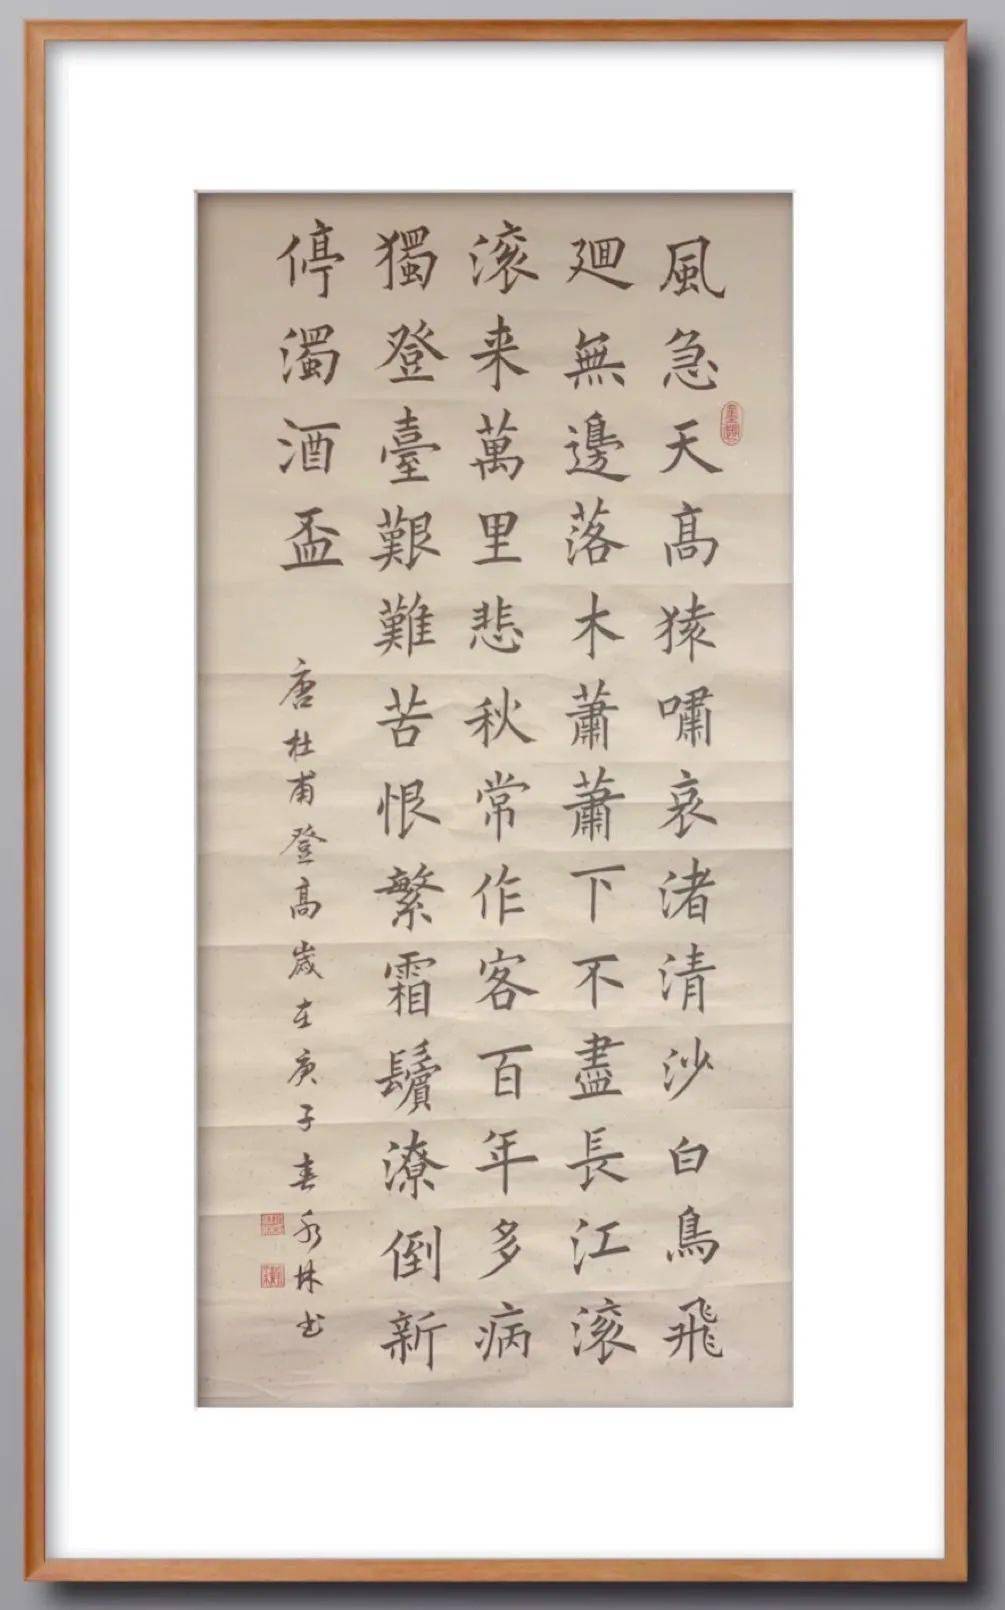 風急天高猿嘯哀渚清沙白鳥飛
廻無邊落木蕭蕭下不盡長江滚
滚来萬里悲秋常作客百年多病
獨登臺艱難苦恨繁霜鬢潦倒新
停濁酒盃
唐杜甫登高歲在庚子春永林书